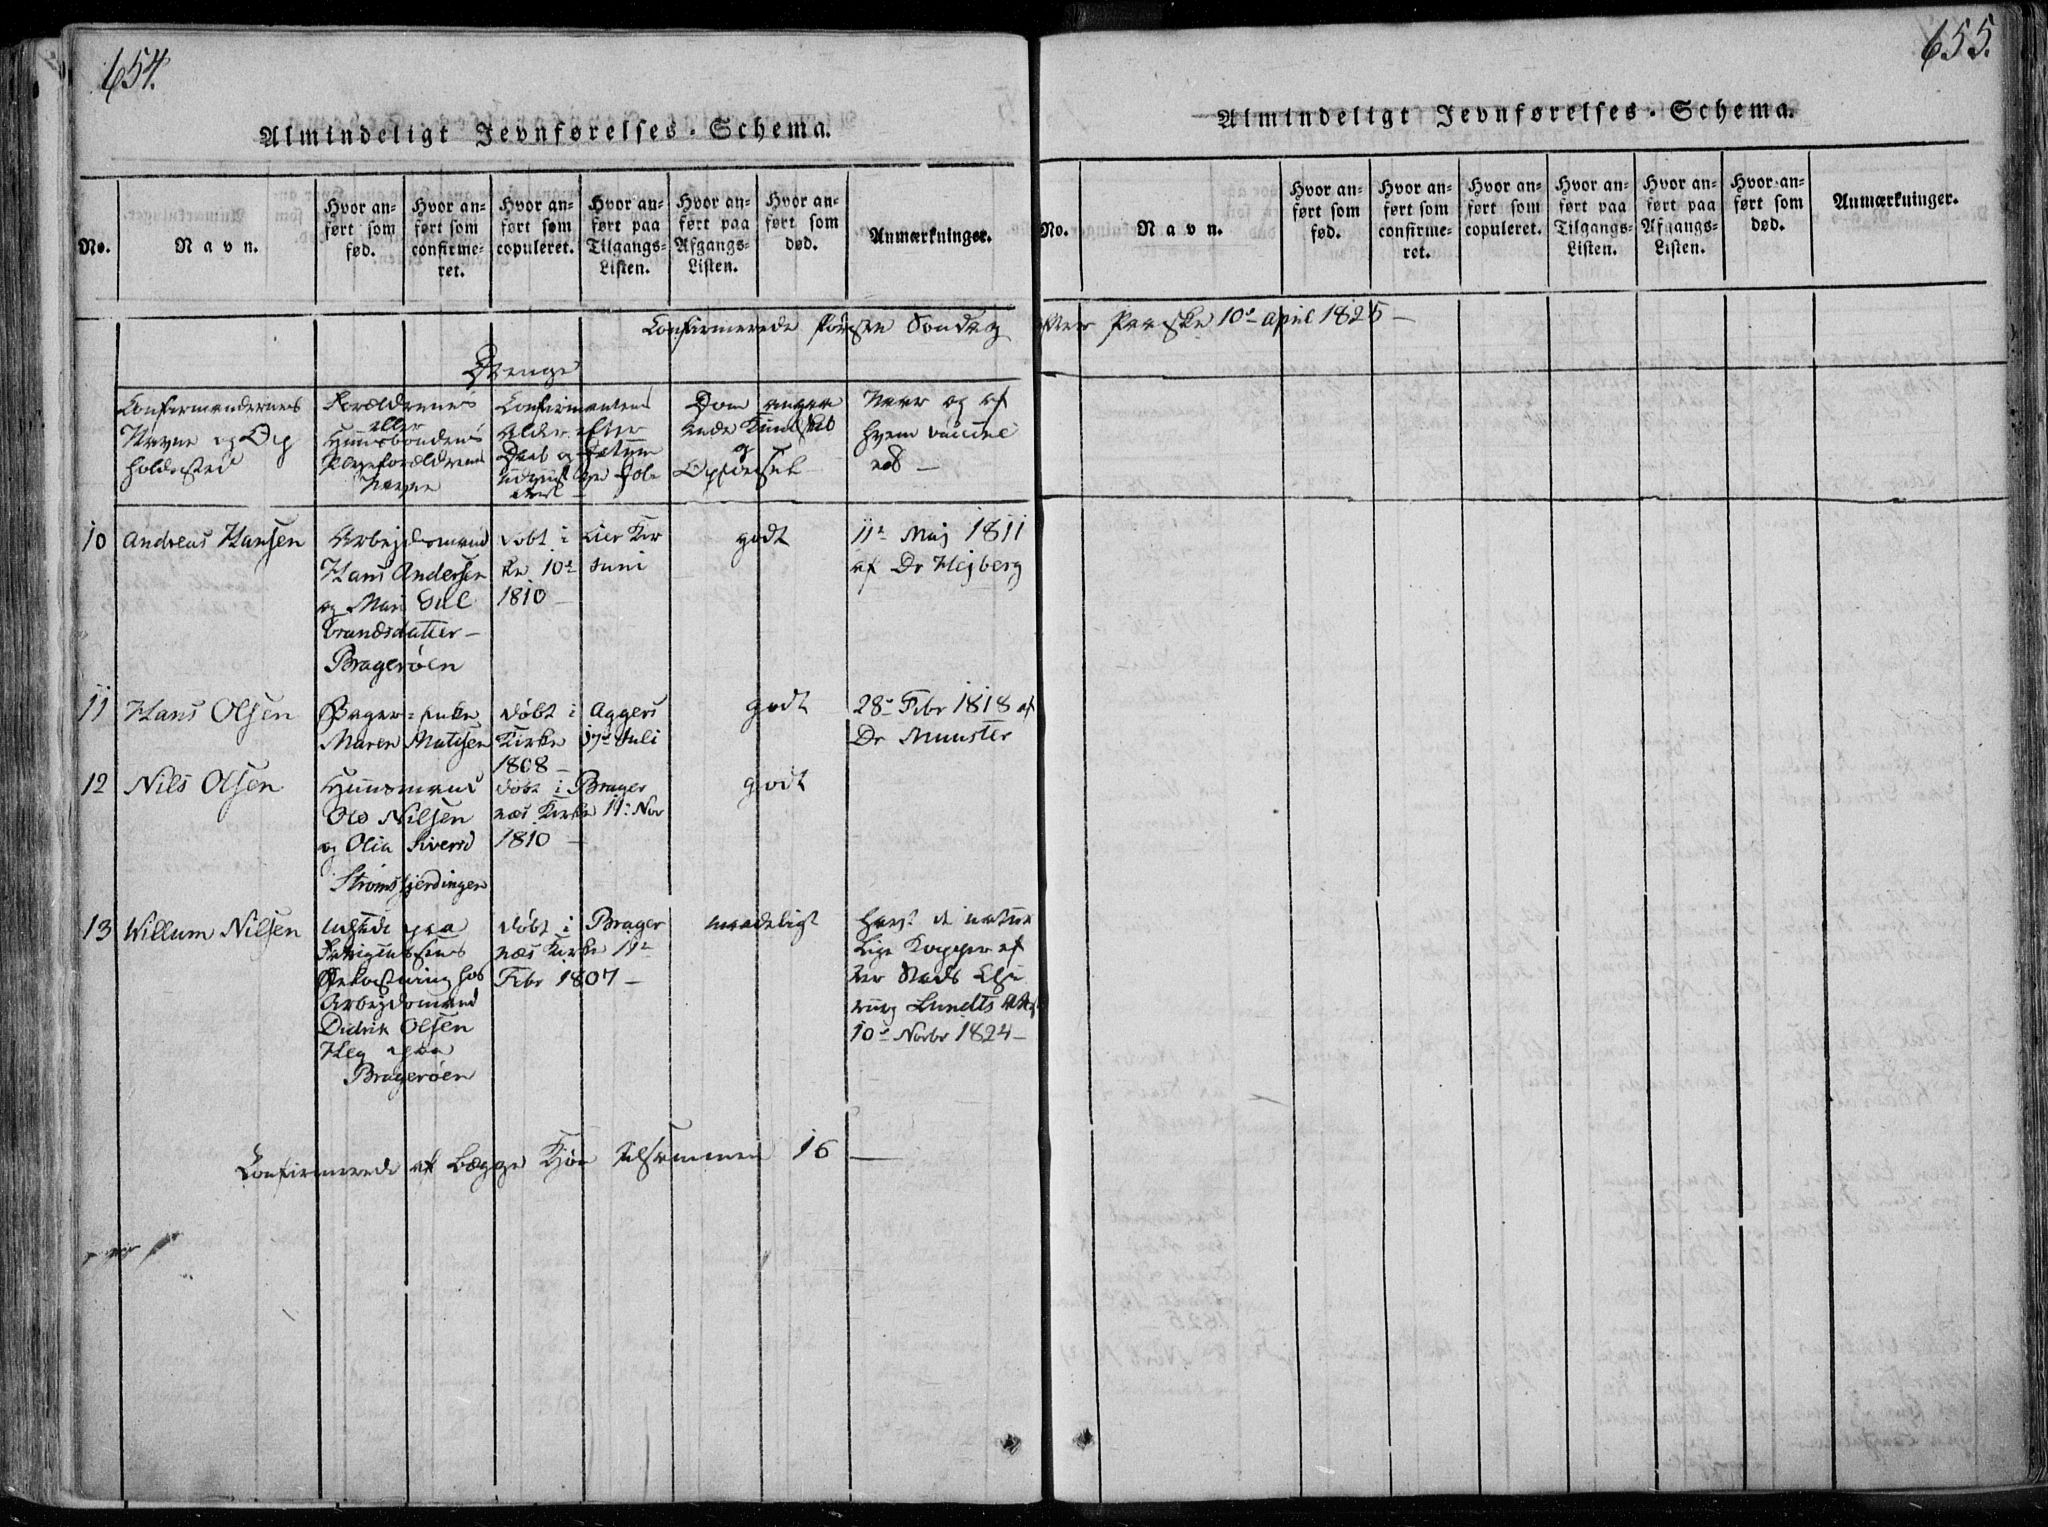 654.
Almindeligt Jevnførelses-Schema.
No.
Navn.
Hvor anført som fød.
Hvor anført som confirmeret.
Hvor anført som copuleret.
Hvor anført paa Tilgangs-Listen.
Hvor anført paa Afgangs-Listen.
Hvor anført som død.
Anmærkninger.
Confirmerede første Søndag
Drenge
Confirmandernes
Navne og Op
holdssted
Forældrenes
eller
Huusbondens
Plejeforældrenes
Navne
Confirmantens
Alder efter
Daab og Datum
Dom angaa
ende Kundskab
og
Opførsel
Naar og af
hvem vaccine
red —
10 Andreas Hansen
Arbejdsmand
Hans Andersen
og Mari Gul
brandsdatter —
Bragerøen
døbt i Lier Kir
ke 10de Juni
1810 —
godt
11te Maj 1811
af Dr Hejberg
11 Hans Olsen
Maren Matisen
døbt i Aggers
Kirke 17de Juli
1808 —
godt
28de Febr 1818 af
Dr Munster
12 Nils Olsen
Huusmand
Ole Nilsen
og Olia Siversd
Strømsfjerdingen
døbt i Brager
næs Kirke 11te Nov
1810 —
godt
13 Willum Nilsen
udsadt paa
Bekostning hos
Arbejdsmand
Didrik Olsen
Heg paa
Bragerøen
døbt i Brager
næs Kirke 11te
Febr 1807 —
maadeligt
havt de natur
lige Kopper af
Lundts Att
10de Novbr 1824 —
Confirmerede af begge Kjøn tilsammen 16 —
655.
Almindeligt Jevnførelses-Schema.
No.
Navn.
Hvor anført som fød.
Hvor anført som confirmeret.
Hvor anført som copuleret.
Hvor anført paa Tilgangs-Listen.
Hvor anført paa Afgangs-Listen.
Hvor anført som død.
Anmærkninger.
efter Paaske 10de April 1825 —